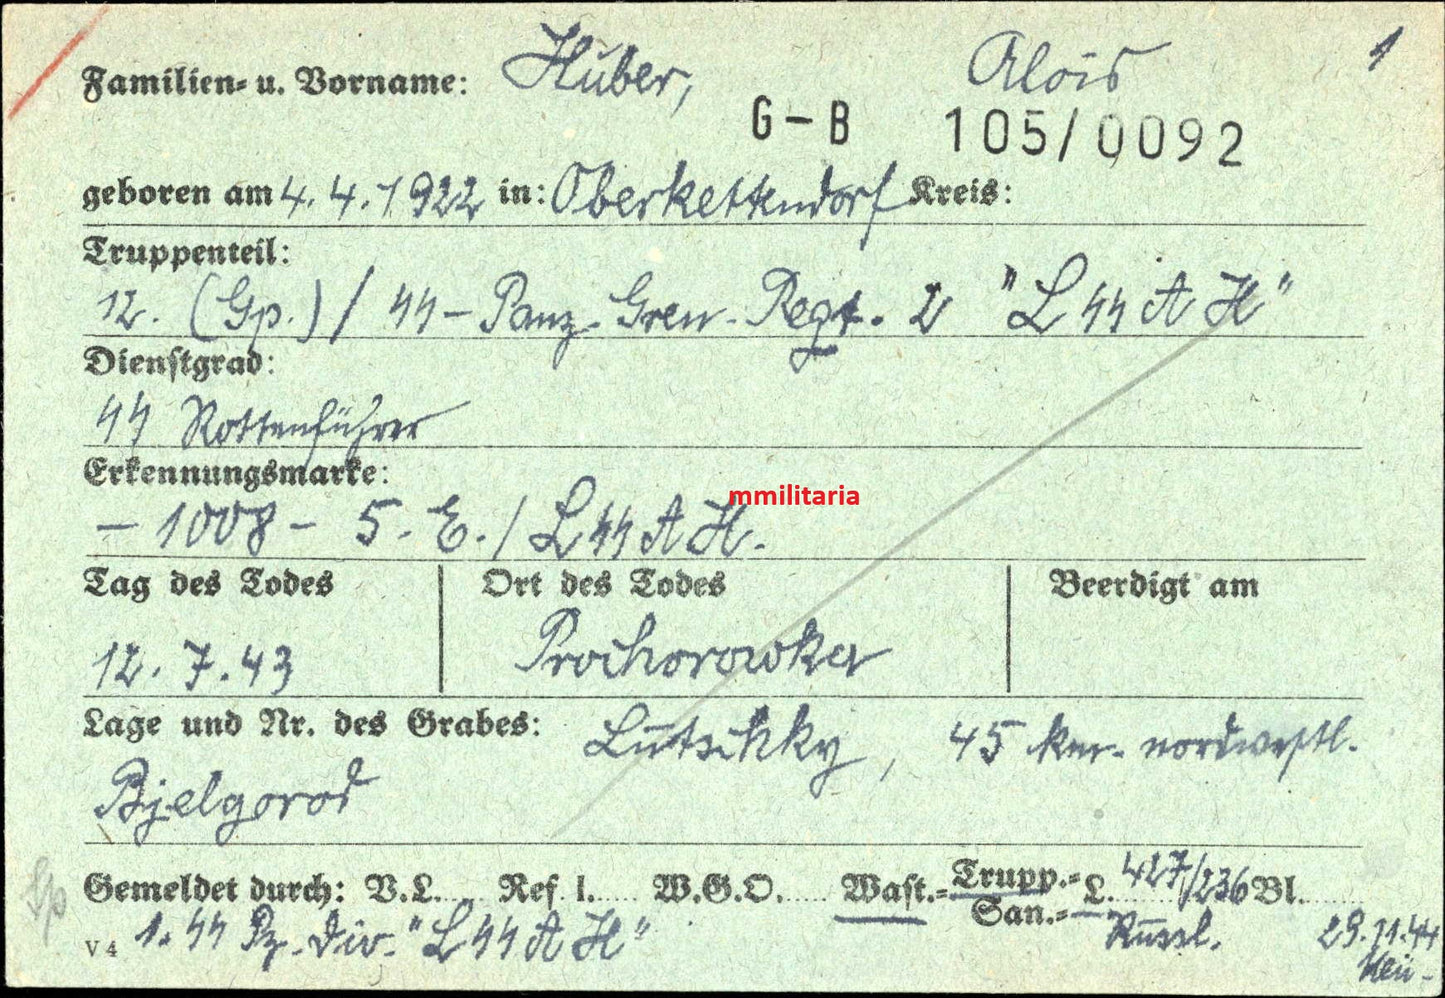 Familien- u. Vorname: Huber, Alois 1
G-B 105/0092
geboren am 4.4.1922 in: Oberkettendorf Kreis:
Truppenteil:
12. (Gp.) / SS-Panz. Gren. Regt. 2 "LSSAH"
Dienstgrad:
SS Rottenführer
Erkennungsmarke:
- 1008 - 5. E. / LSSAH.
mmilitaria
Tag des Todes Ort des Todes Beerdigt am
12.7.43 Prochorowka
Lage und Nr. des Grabes: Lutschky, 45 km. nordwestl.
Bjelgorod
Gemeldet durch: V.L. Ref. I. W.G.O. Wast.= Trupp.= San.= L. 427/236 Bl.
V 4 1. SS Pz. Div. "LSSAH" Russl. 29.11.44